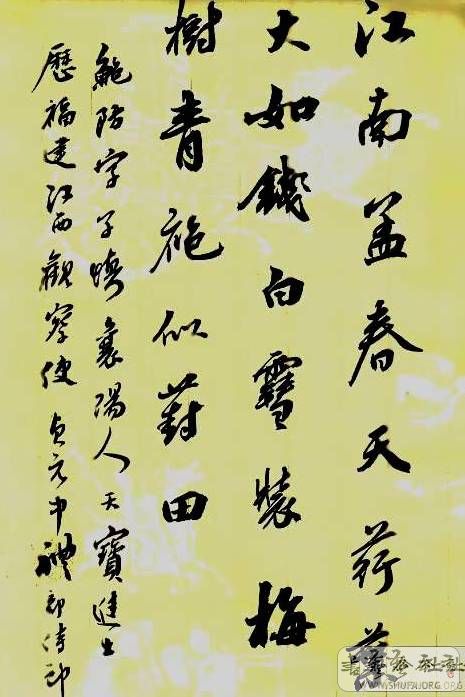 江南孟春天荇
大如錢白雪裝梅
樹青袍似葑田
鮑防字子慎襄陽人天寶進士
歷福建江西觀察使貞元中禮部侍郎